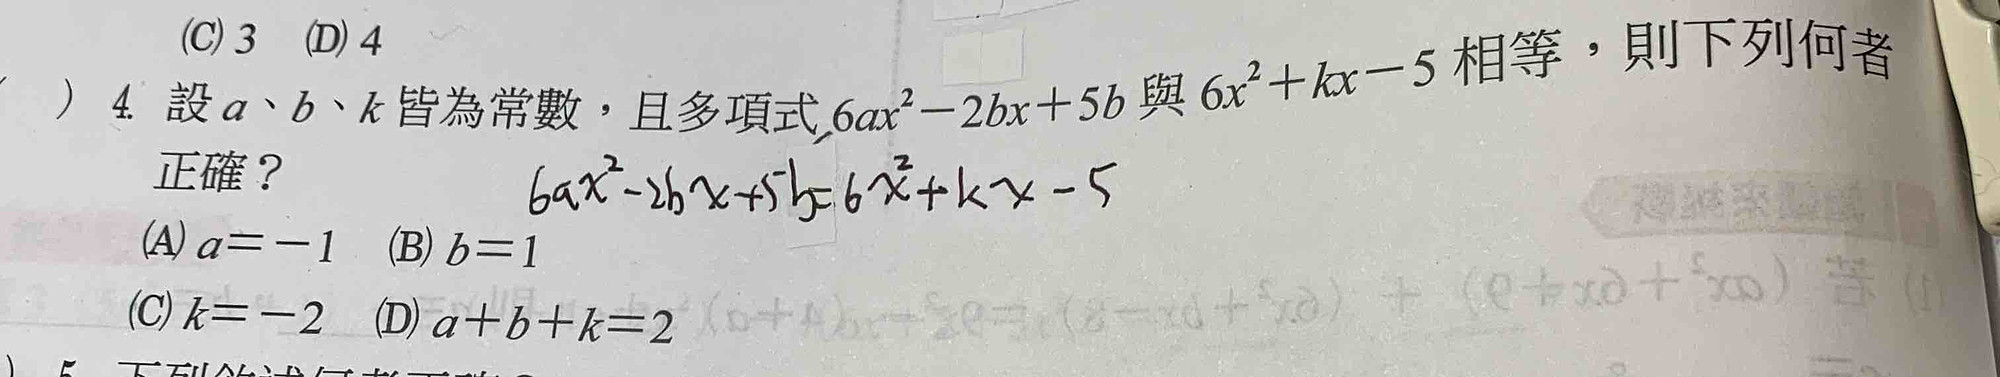 (C) 3 (D) 4
) 4. 設 a、b、k 皆為常數,且多項式 6ax²-2bx+5b 與 6x²+kx-5 相等,則下列何者
正確?
6ax²-2bx+5b=6x²+kx-5
(A) a=-1 (B) b=1
(C) k=-2 (D) a+b+k=2
) 5.